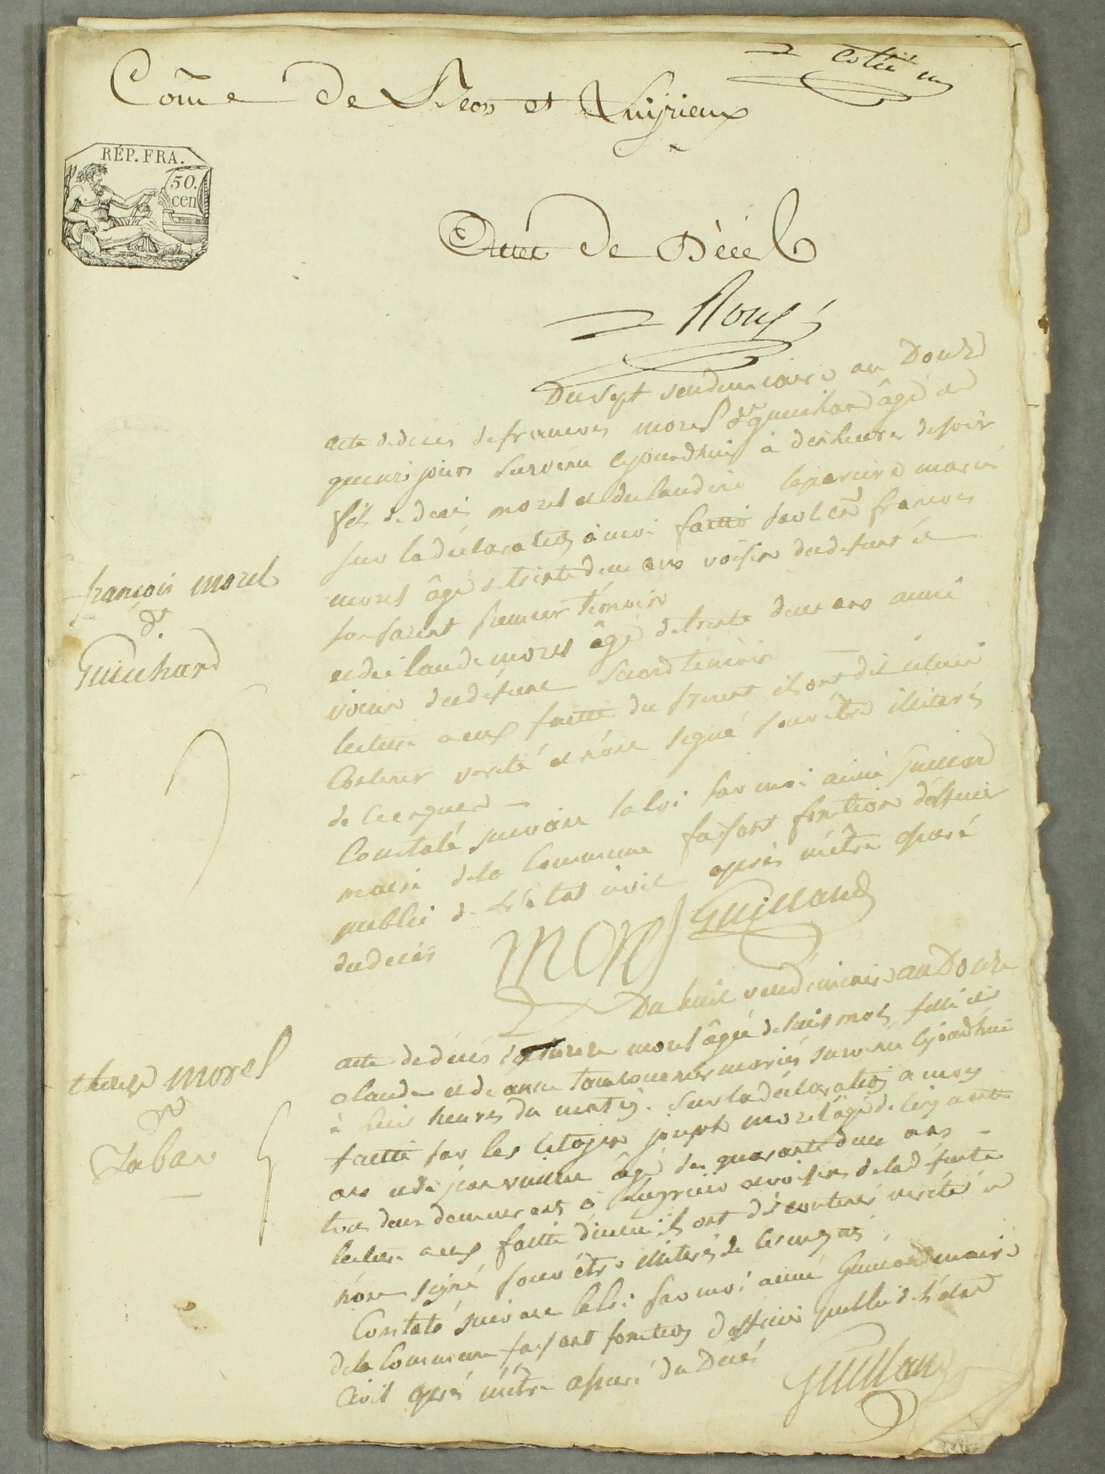 Com̃e De Et Luÿrieux
RÉP. FRA.
50.
cen
De Décel
Du Sept vendemiaire an Douze
acte de décès de francois morel âgé de
quinze jours Survenu ce jourdhuy à dix heures de soir
fils de morel et de Claudine mariés
Sur la déclaration a moi faitte par le Cen francois
morel âgé de trente deux ans voisin du défunt et
françois morel
&
Guichard
son parent premier témoin
et de Claude morel âgé de trente deux ans aussi
voisin du défunt Second temoin
lecture a eux faitte du présent ils ont dit icelui
Contenir verité et n'ont signé pour être iliterés
de ce enquis
Constaté suivant la loi par moi aimé Guilland
maire de la Commune faisant fonction d'officier
public de L'état civil après m'être assuré
du décès
Guilland
Du huit vendemiaire an Douze
acte de décès de morel âgée de huit mois fille de
morel
&
claude et de anne mariés survenu ce jourdhui
à huit heures du matin. Sur la déclaration a moy
faitte par les Citoyen joseph morel âgé de cinquante
ans et de jean âgé de quarante deux ans
tous deux demeurant à Luyrieu voisins de la défunte
lecture a eux faitte d'icelui ils ont dit contenir verité et
n'ont signé pour être illiterés de ce enquis
Constaté suivant la loi par moi aimé Guilland maire
de la Commune faisant fonction d'officier public de l'état
Civil après m'être assuré du Décès
Guilland